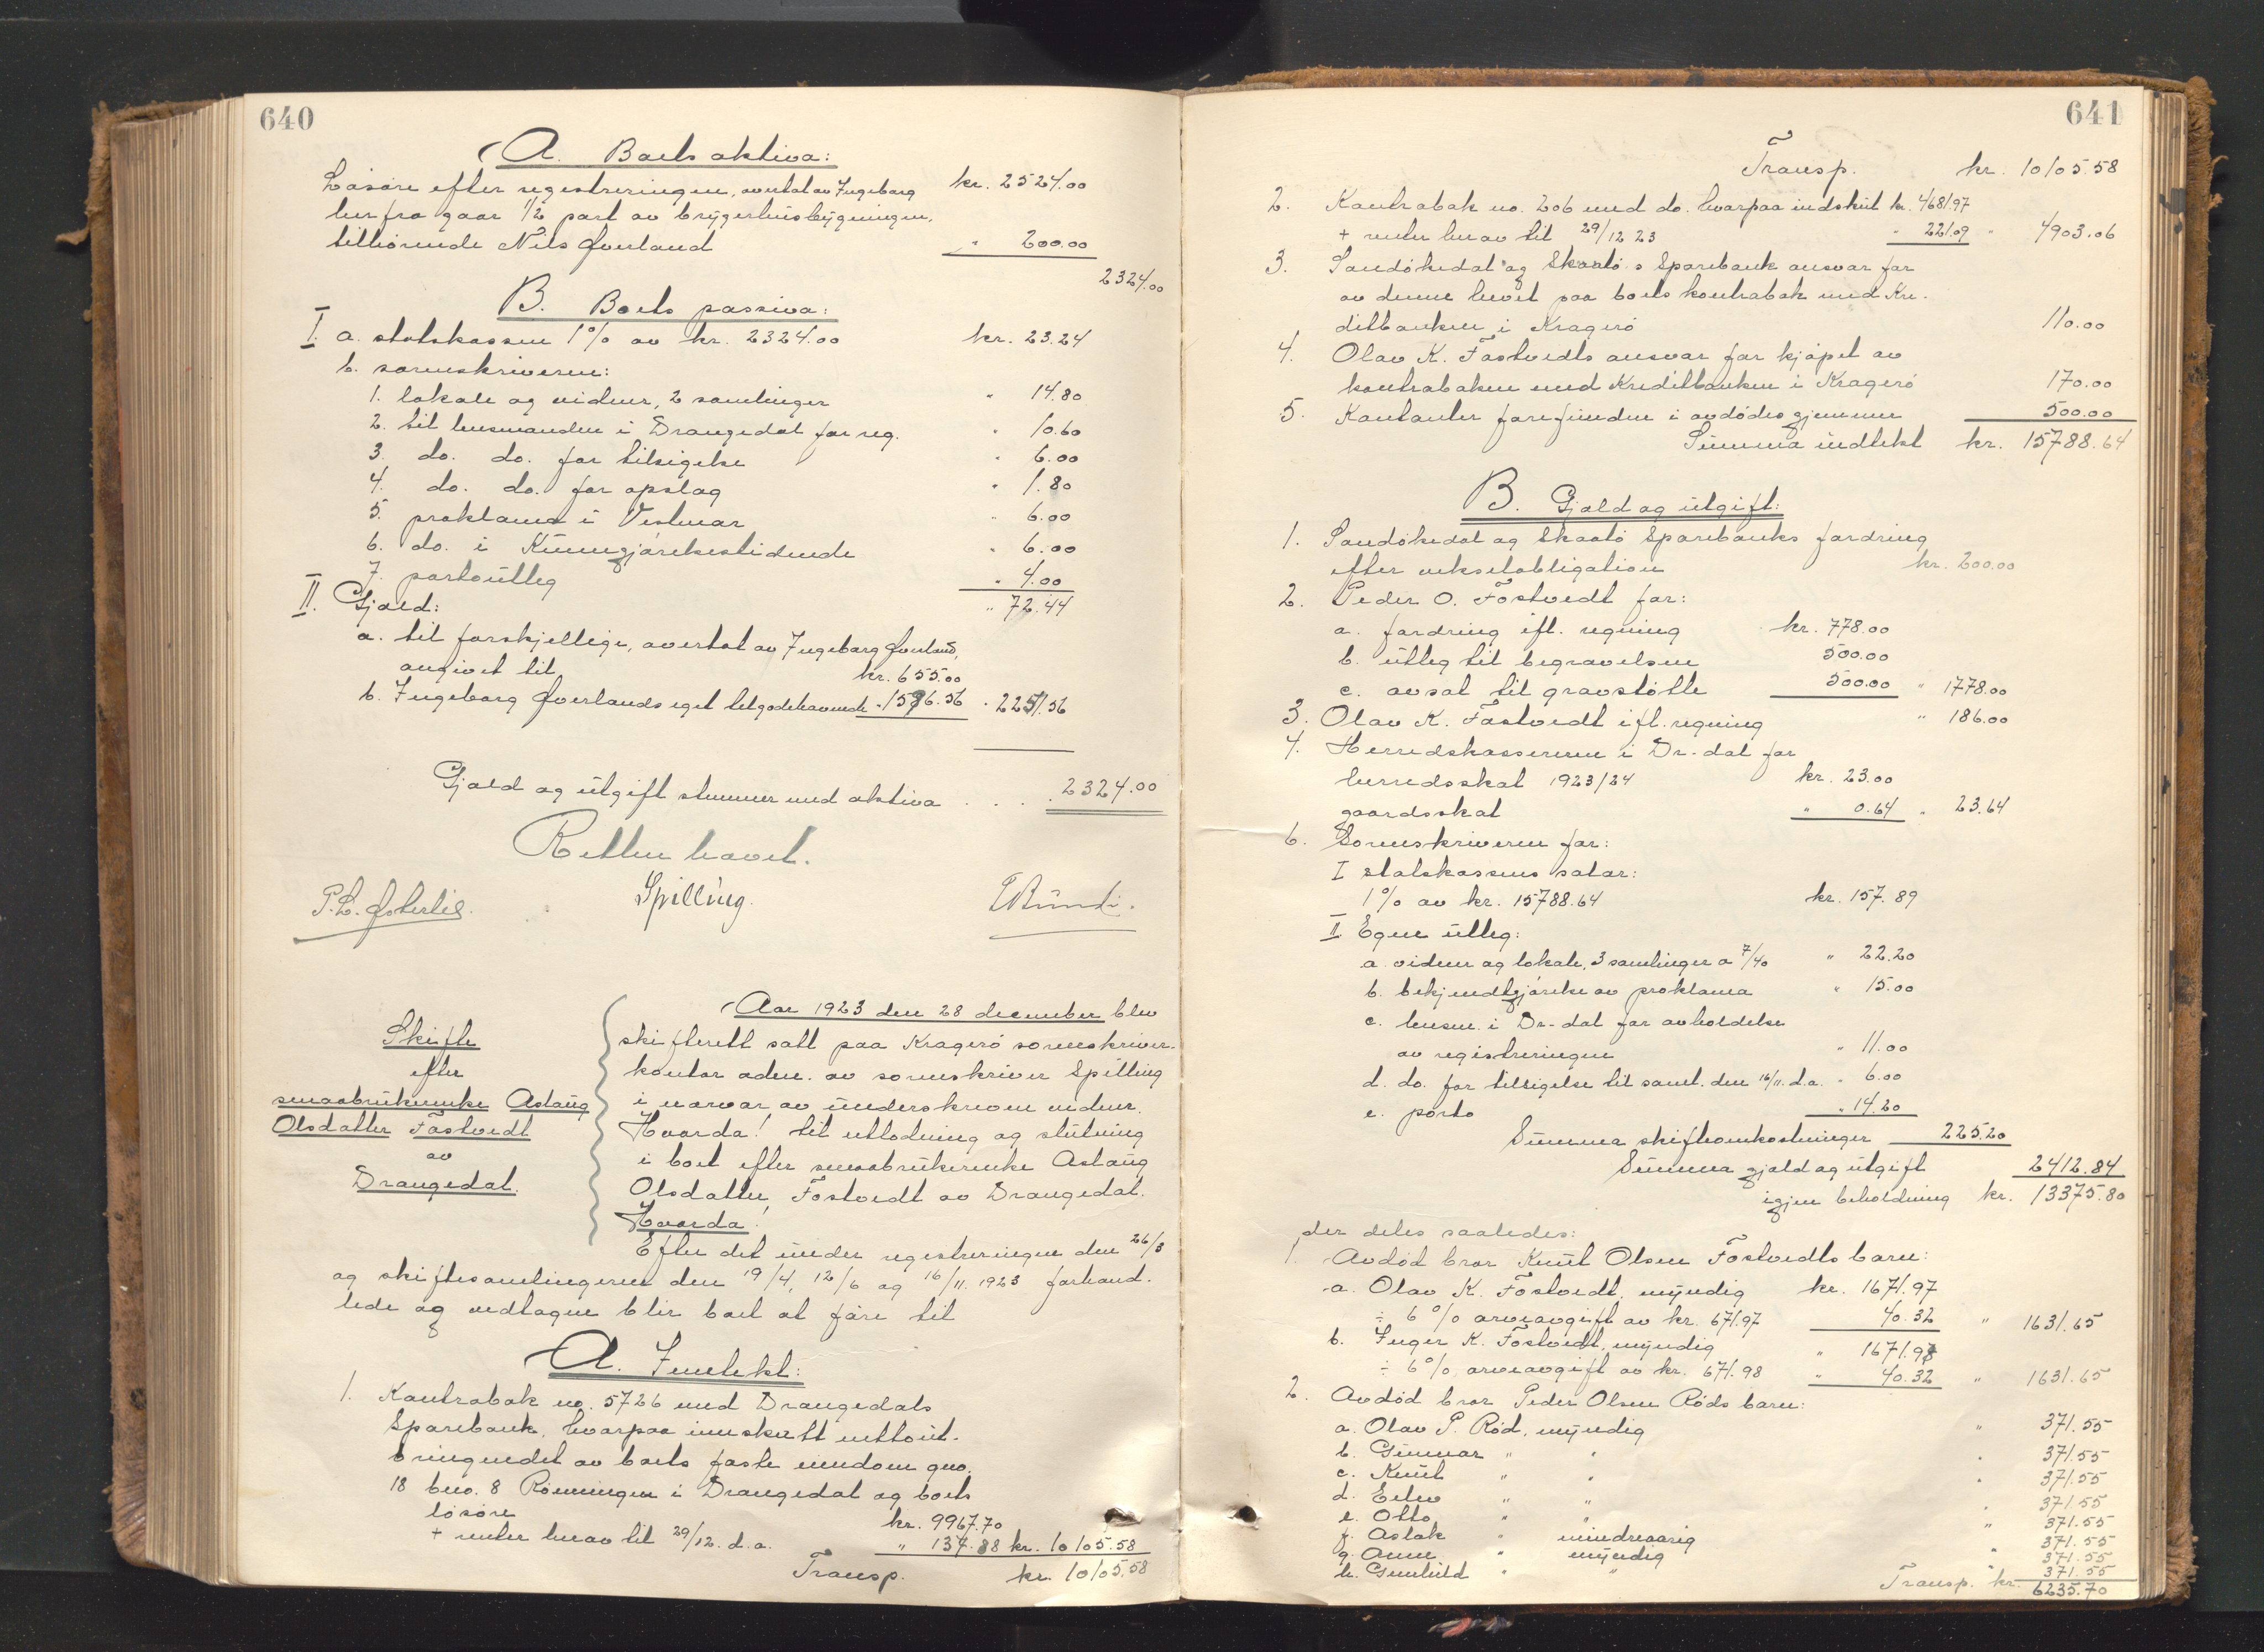 640
A. Boets aktiva:
Løsøre efter registreringen, overtat av Ingeborg kr. 2524.00
herfra gaar 1/2 part av bryggerhusbygningen,
tilhørende Nils Øverland " 200.00
2324.00
B. Boets passiva:
I. a. statskassen 1% av kr. 2324.00 kr. 23.24
b. sorenskriveren:
1. lokale og vidner, 2 samlinger " 14.80
2. til lensmanden i Drangedal for reg. " 10.60
3. do. do. for tilsigelse " 6.00
4. do. do. for opslag " 1.80
5. proklama i Vestmar " 6.00
6. do. i Kunngjørelsestidende " 6.00
7. portoutleg " 4.00
" 72.44
II. Gjæld:
a. til forskjellige, overtat av Ingeborg Øverland,
angivet til kr. 655.00
b. Ingeborg Øverlands eget tilgodehavende " 1596.56 " 2251.56
Gjæld og utgift stemmer med aktiva . . . . 2324.00
Retten hævet.
P.L. Østerlid. Spilling.
Skifte
efter
smaabrukerenke Aslaug
Olsdatter Fostvedt
av
Drangedal.
Aar 1923 den 28 december blev
skifterett satt paa Kragerø sorenskriver-
kontor adm. av sorenskriver Spilling
i nærvær av underskrevne vidner.
Hvorda! til utlodning og slutning
i boet efter smaabrukerenke Aslaug
Olsdatter Fostvedt av Drangedal.
Hvorda!
Efter det under registreringen den 26/3
og skiftesamlingerne den 19/4, 12/6 og 16/11. 1923 forhand-
lede og vedtagne blir boet at føre til
A. Inntekt:
1. Kontrabok no. 5726 med Drangedals
Sparebank, hvorpaa innskutt nettout-
bringendet av boets faste eiendom gno.
18 bno. 8 Rønningen i Drangedal og boets
løsøre kr. 9967.70
+ renter herav til 29/12. d.a. " 137.88 kr. 10105.58
Transp. kr. 10105.58
641
Transp. kr. 10105.58
2. Kontrabok no. 206 med do. hvorpaa indskut kr. 4681.97
+ renter herav til 29/12 23 " 221.09 " 4903.06
3. Sandøkedal og Skaatø's Sparebank ansvar for
av denne hevet paa boets kontrabok med Kre-
ditbanken i Kragerø 110.00
4. Olav K. Fostvedts ansvar for kjøpet av
kontraboken med Kreditbanken i Kragerø 170.00
5. Kontanter forefunden i avdødes gjemme 500.00
Summa indtekt kr. 15788.64
B. Gjæld og utgift:
1. Sandøkedal og Skaatø Sparebanks fordring
efter vekselobligation kr. 200.00
2. Peder O. Fostvedt for:
a. fordring ifl. regning kr. 778.00
b. utleg til begravelsen 500.00
c. avsat til gravstøtte 500.00 " 1778.00
3. Olav K. Fostvedt ifl. regning " 186.00
4. Herredskassereren i Dr-dal for
herredsskat 1923/24 kr. 23.00
gaardsskat " 0.64 " 23.64
6. Sorenskriveren for:
I statskassens salær:
1% av kr. 15788.64 kr. 157.89
II. Egne utleg:
a. vidner og lokale, 3 samlinger a 7/40 " 22.20
b. bekjendtgjørelse av proklama " 15.00
c. lensm. i Dr-dal for avholdelse
av registreringen " 11.00
d. do. for tilsigelse til saml. den 16/11. d.a. " 6.00
e. porto " 14.20
Summa skifteomkostninger 225.20
Summa gjæld og utgift 2412.84
igjen beholdning kr. 13375.80
der deles saaledes:
1. Avdød bror Knut Olsen Fostvedts barn:
a. Olav K. Fostvedt, myndig kr. 1671.97
÷ 6% arveavgift av kr. 671.97 40.32 " 1631.65
b. Inger K. Fostvedt, myndig " 1671.98
÷ 6% arveavgift av kr. 671.98 " 40.32 " 1631.65
2. Avdød bror Peder Olsen Røds barn:
a. Olav P. Rød, myndig " 371.55
b. Gunnar " " " 371.55
c. Knut " " " 371.55
d. Eilev " " " 371.55
e. Otto " " " 371.55
f. Aslak " mindreaarig 371.55
g. Anne " myndig " 371.55
h. Gunhild " " " 371.55
Transp. kr. 6235.70